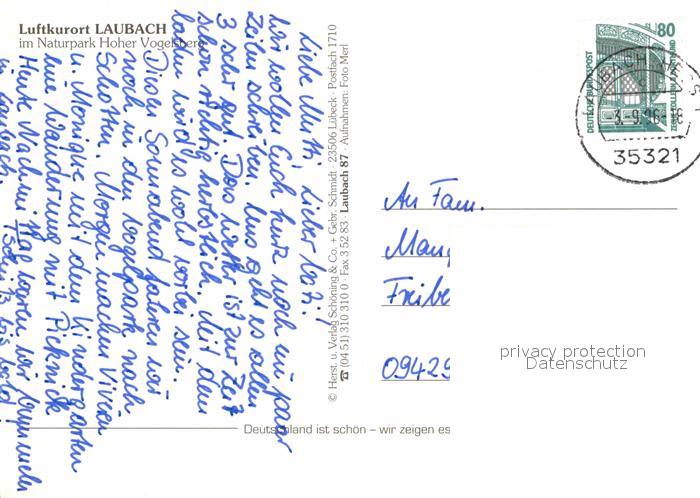 Luftkurort LAUBACH
im Naturpark Hoher Vogelsberg
Liebe Mutti, Lieber
wir wollen Euch kurz noch ein paar
Zeilen schreiben. Uns geht es allen
3 sehr gut. Das Wetter ist zur Zeit
schon richtig herbstlich. Mit dem
baden wird es wohl vorbei sein.
Diesen Sonnabend fahren wir
noch in den Vogelpark nach
Schotten. Morgen machen Vivien
u. Monique mit dem Kindergarten
eine Wanderung mit Picknick
Heute Nachmittag waren wir
in Laubach. Tschüß bis bald
© Herst. u. Verlag Schöning & Co. + Gebr. Schmidt · 23506 Lübeck · Postfach 1710
☎ (04 51) 310 310 0 · Fax 3 52 83 · Laubach 87 · Aufnahmen: Foto Merl
80
DEUTSCHE BUNDESPOST
3.-9.96-18
35321
An Fam.
Mang
Freibe
09429
privacy protection
Datenschutz
Deutschland ist schön – wir zeigen es